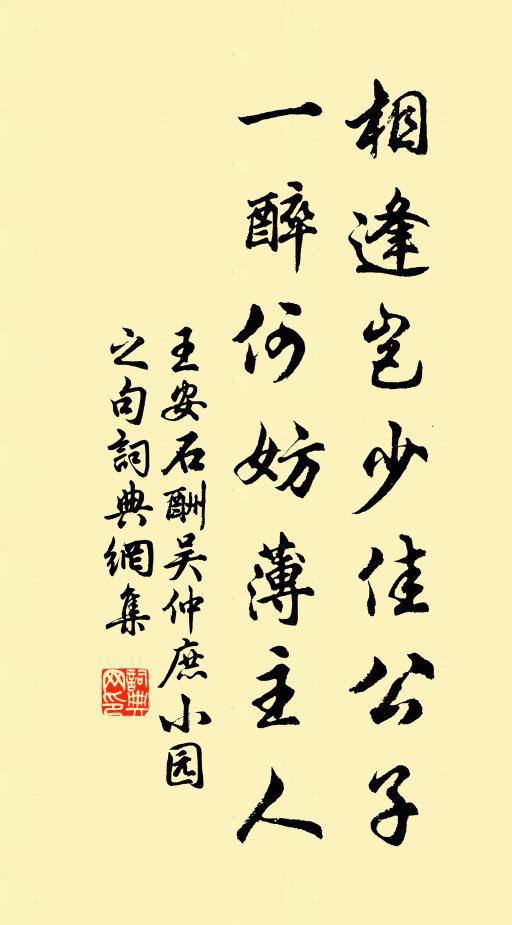 相逢岂少佳公子
一醉何妨薄主人
王安石酬吴仲庶小园
之句詞典網集
詞典
网印